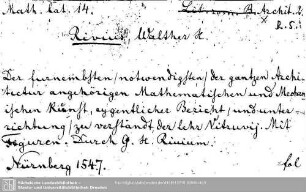 Math. kat. 14. Litteron. B. Archit. 2.
2.5.
Rivius, Walther H.
Der furnembsten / notwendigsten / der gantzen Archi-
tectur angehörigen Mathematischen und Mechan-
ischen Kunst, eygentlicher Bericht / und unter-
richtung / zu verständt der lehr Vitruvij. Mit
Figuren. Durch G. H. Rivium.
Nürnberg 1547. fol.
Sächsische Landesbibliothek -
Staats- und Universitätsbibliothek Dresden